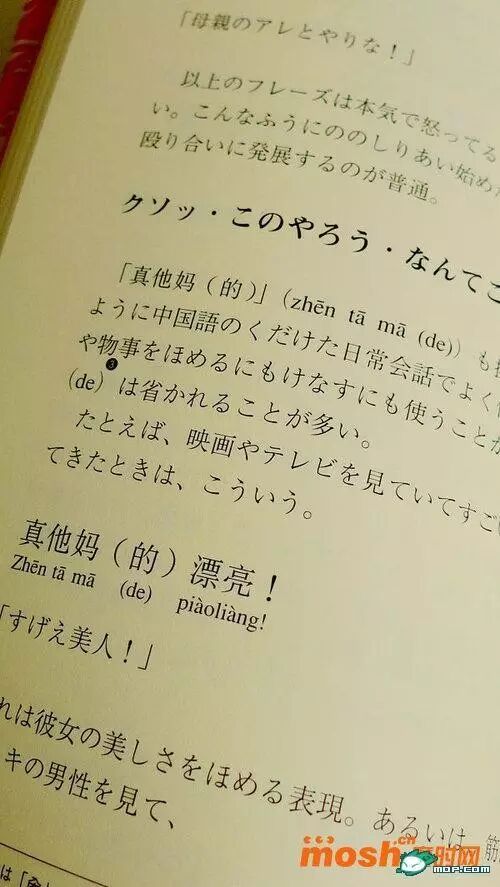 「母親のアレとやりな！」
以上のフレーズは本気で怒ってる
い。こんなふうにののしりあい始めた
殴り合いに発展するのが普通。
クソッ・このやろう・なんてこ
「真他妈（的）」(zhēn tā mā (de)) も
ように中国語のくだけた日常会話でよく
や物事をほめるにもけなすにも使うことが
❸
(de) は省かれることが多い。
たとえば、映画やテレビを見ていてすご
てきたときは、こういう。
真他妈（的）漂亮！
Zhēn tā mā (de) piàoliàng!
「すげえ美人！」
れは彼女の美しさをほめる表現。あるいは、筋
キの男性を見て、
mosh.cn
时网
MOP.COM